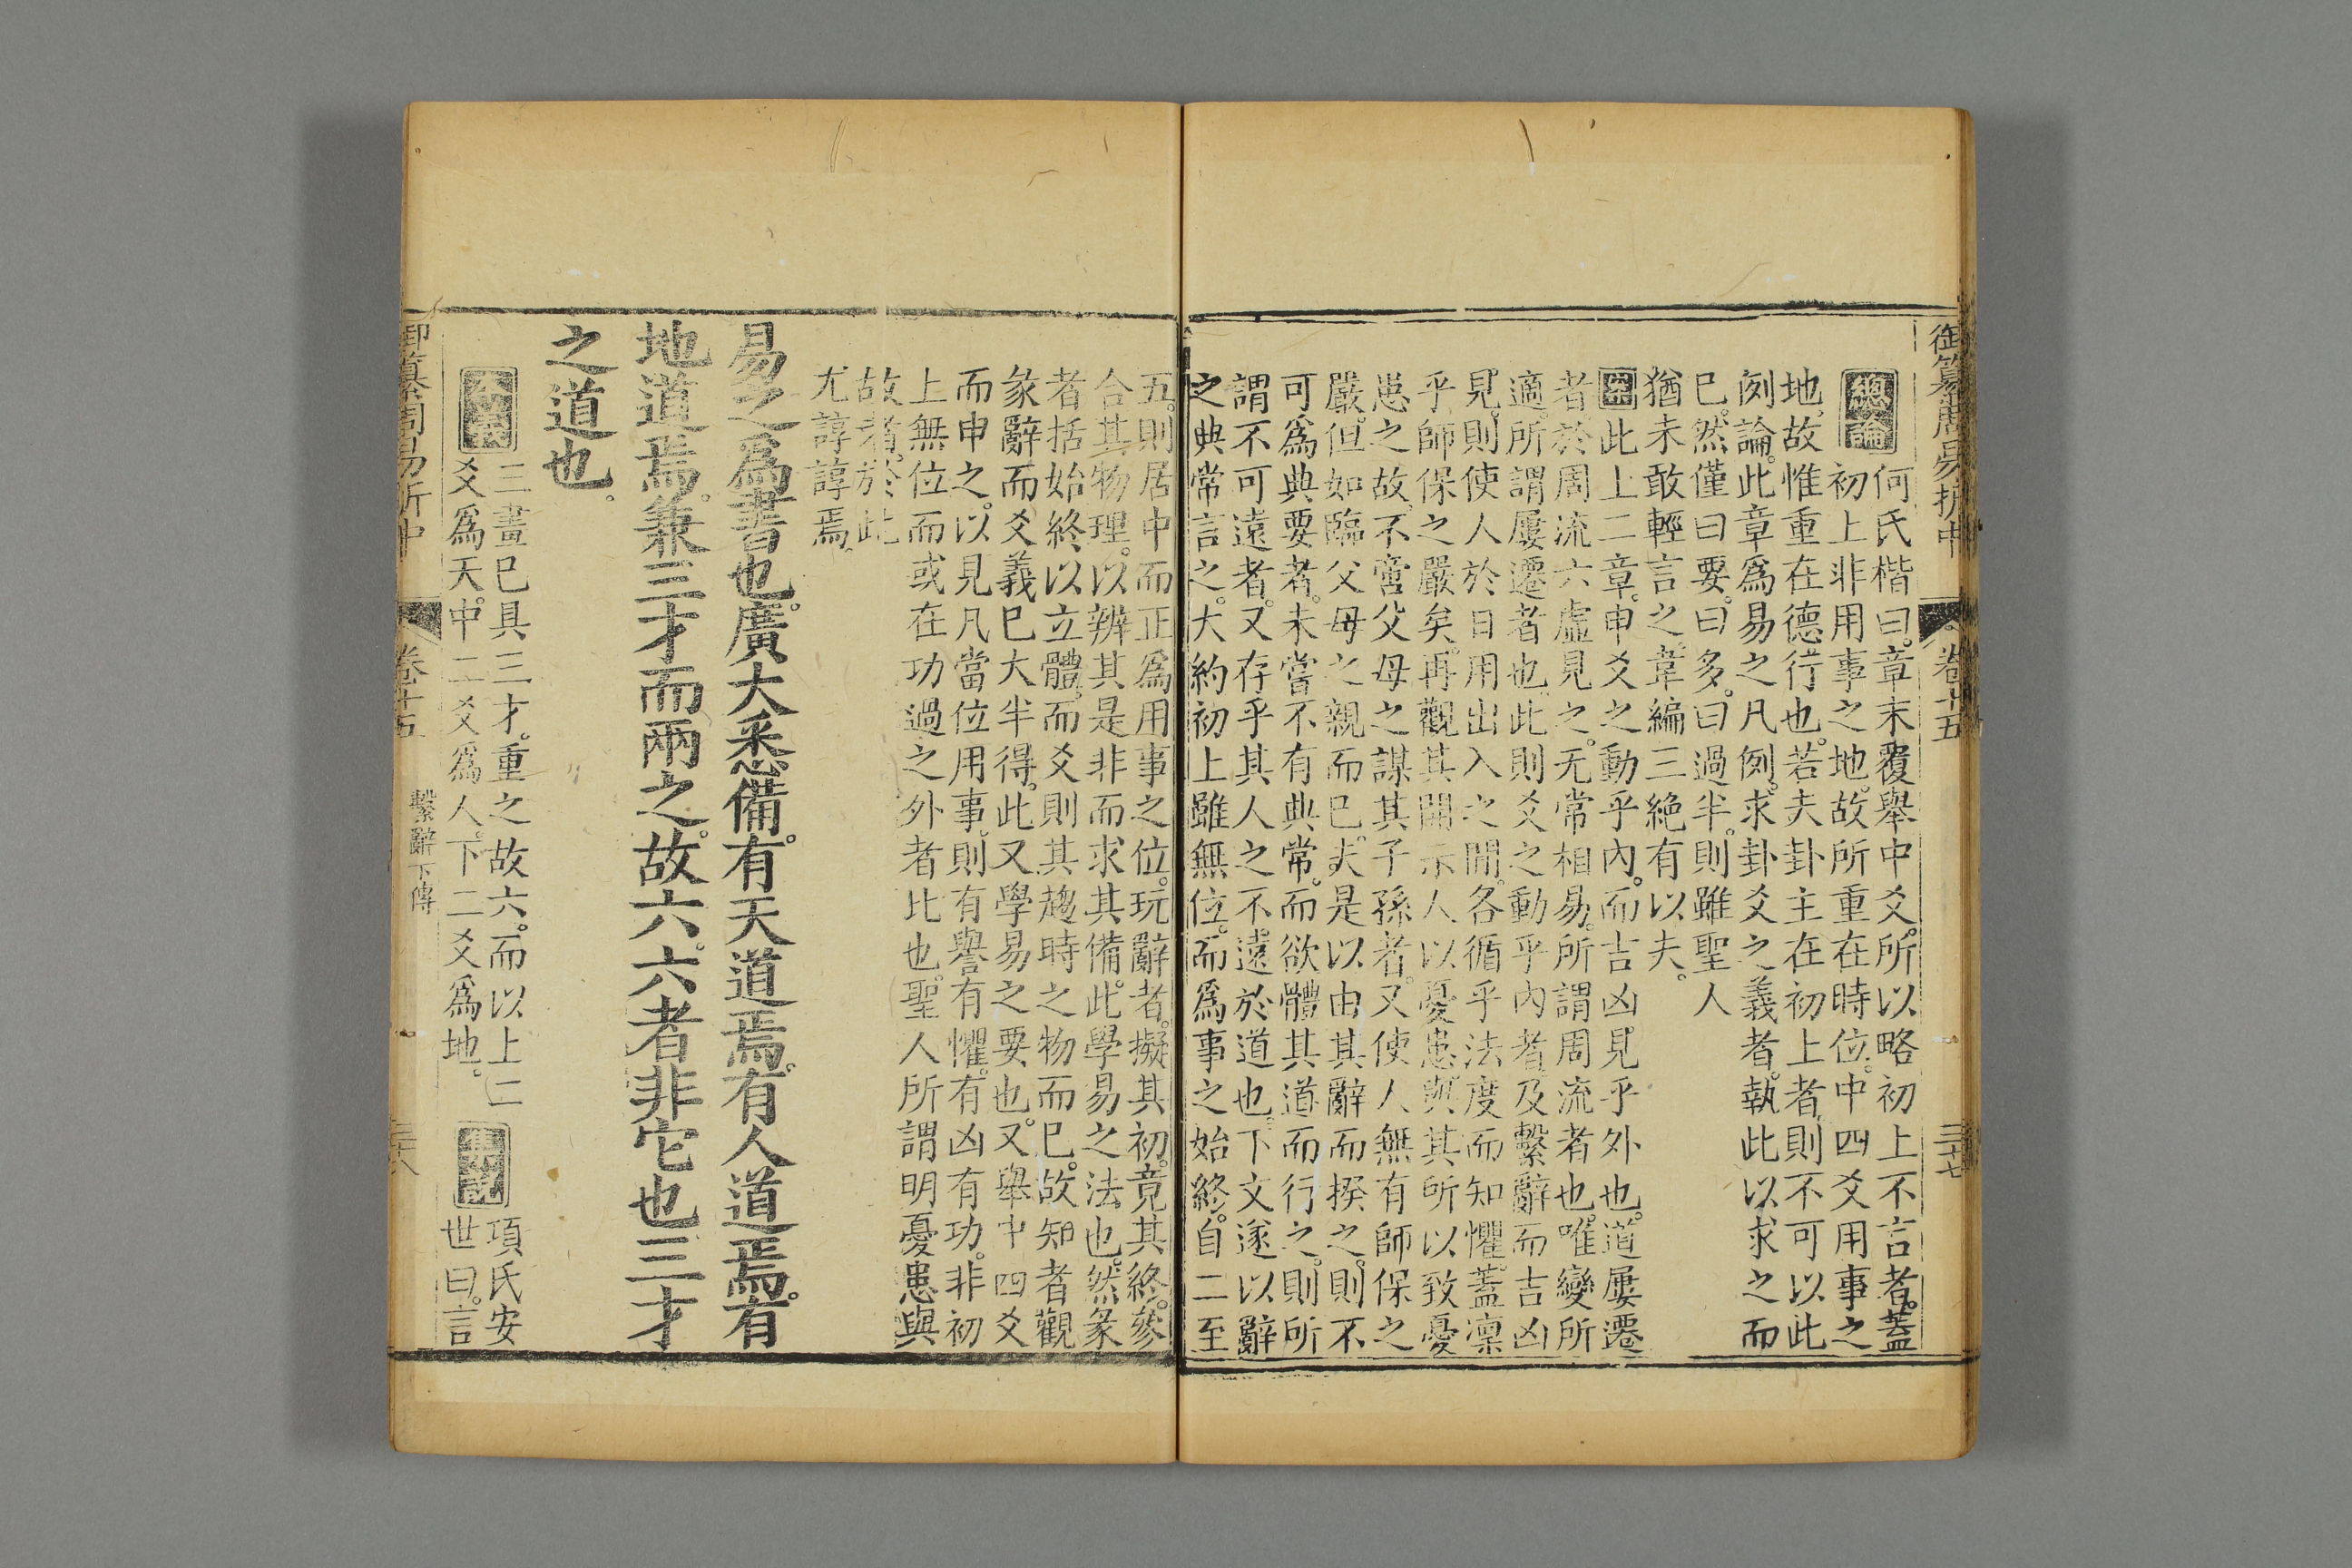 御纂周易折中 卷十五 三十七
總論 何氏楷曰。章末覆舉中爻。所以略初上不言者。蓋
初上非用事之地。故所重在時位。中四爻用事之
地。故惟重在德行也。若夫卦主在初上者。則不可以此
例論。此章為易之凡例。求卦爻之義者。執此以求之而
已。然僅曰要。曰多。曰過半。則雖聖人
猶未敢輕言之。韋編三絕有以夫。
案此上二章。申爻之動乎內。而吉凶見乎外也。道屢遷
者於周流六虛見之。无常相易。所謂周流者也。唯變所
適。所謂屢遷者也。此則爻之動乎內者。及繫辭而吉凶
見。則使人於日用出入之間。各循乎法度而知懼。蓋凜
乎師保之嚴矣。再觀其開示人以憂患。與其所以致憂
患之故。不啻父母之謀其子孫者。又使人無有師保之
嚴。但如臨父母之親而已。夫是以由其辭而揆之。則不
可為典要者。未嘗不有典常。而欲體其道而行之。則所
謂不可遠者。又存乎其人之不遠於道也。下文遂以辭
之典常言之。大約初上雖無位。而為事之始終。自二至
五。則居中而正為用事之位。玩辭者。擬其初。竟其終。參
合其物理。以辨其是非而求其備。此學易之法也。然彖
者括始終以立體。而爻則其趨時之物而已。故知者觀
彖辭而爻義已大半得。此又學易之要也。又舉中四爻
而申之。以見凡當位用事。則有譽有懼。有凶有功。非初
上無位而或在功過之外者比也。聖人所謂明憂患與
故者。於此
尤諄諄焉。
易之為書也。廣大悉備。有天道焉。有人道焉。有
地道焉。兼三才而兩之。故六。六者非它也三才
之道也。
三畫已具三才。重之故六。而以上二
爻為天。中二爻為人。下二爻為地。
集說 項氏安
世曰。言
御纂周易折中 卷十五 繫辭下傳 三十八